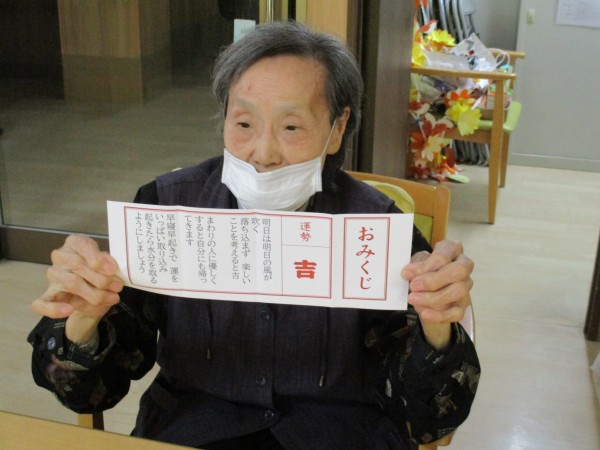 おみくじ
運勢
吉
明日は明日の風が
吹く
落ち込まず 楽しい
ことを考えると吉
まわりの人に優しく
すると自分にも帰っ
てきます
早寝早起きで 運を
いっぱい取り込み
起きたら水分を取る
ようにしましょう